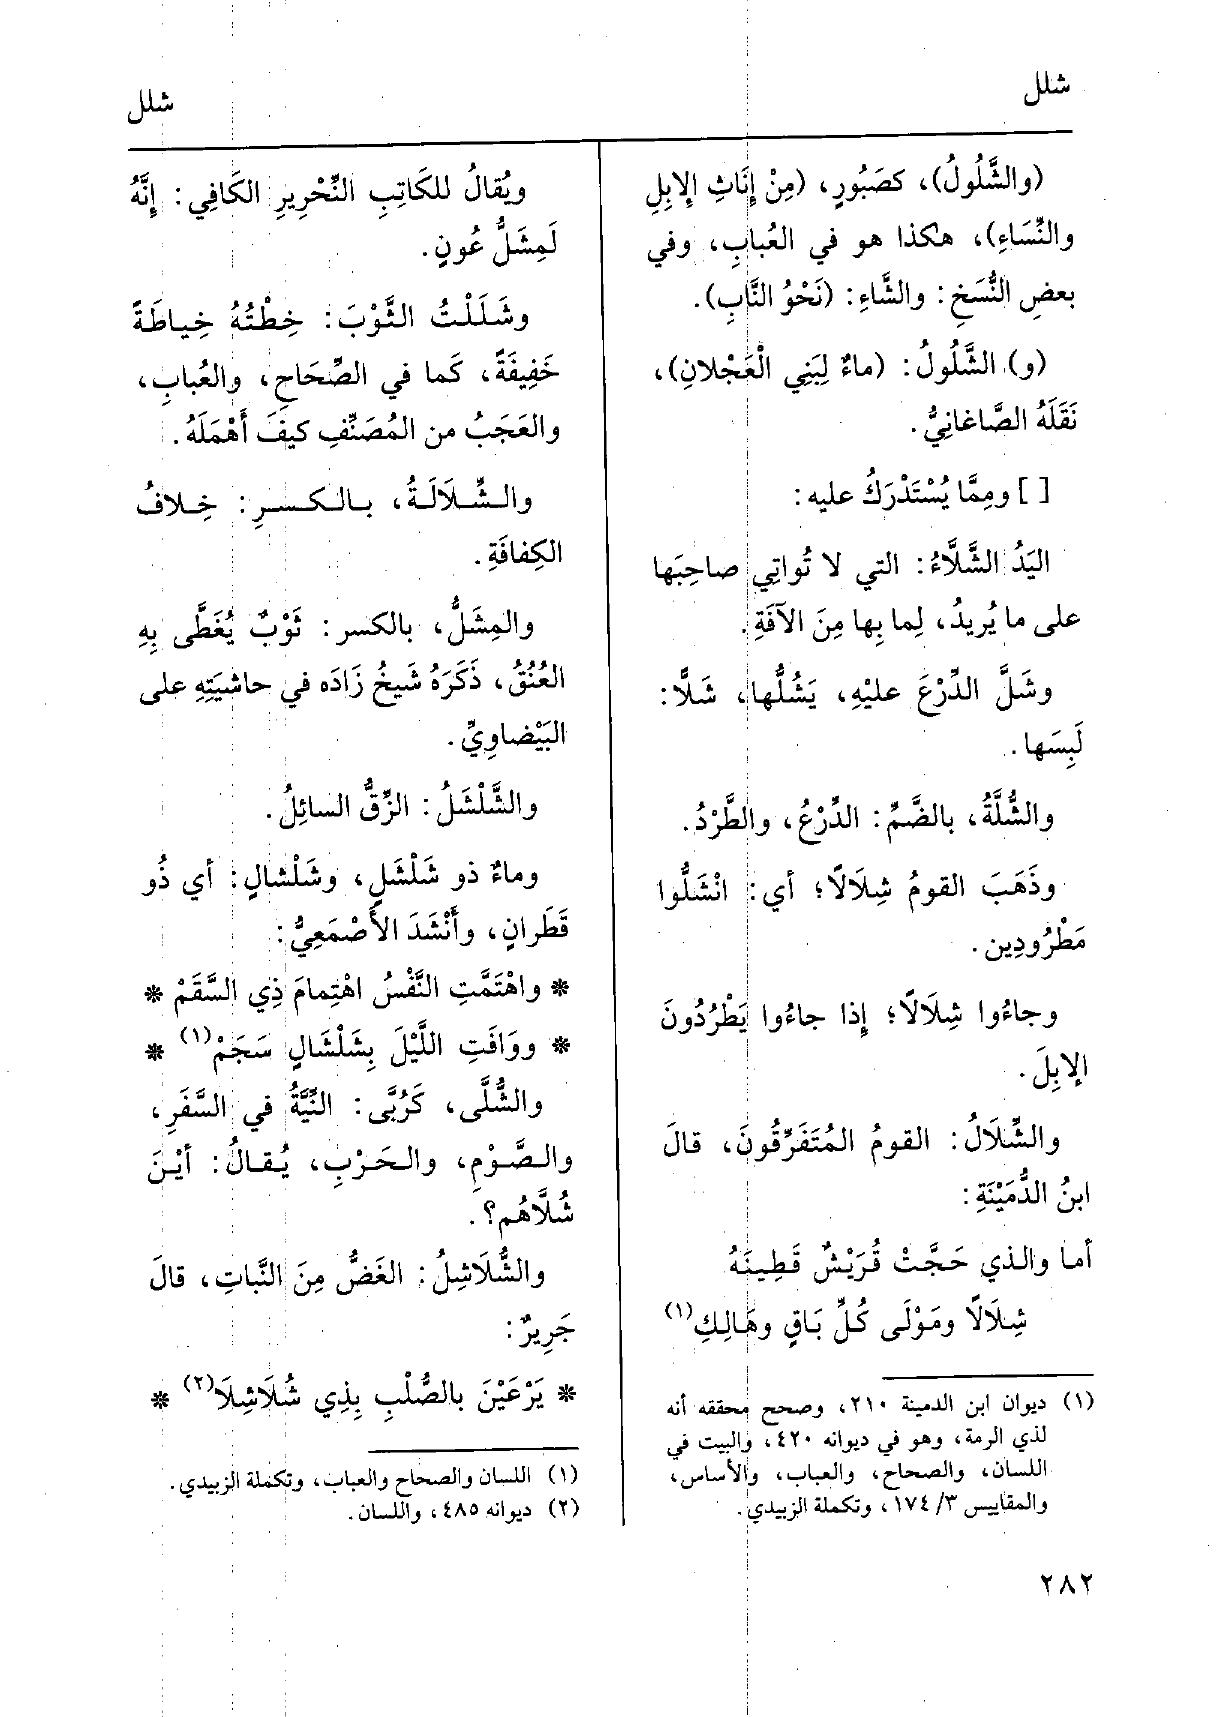 شلل
شلل
(والشَّلُولُ)، كصَبُورٍ، (مِنْ إِنَاثِ الإِبِلِ
والنِّسَاءِ)، هكذا هو في العُبابِ، وفي
بعضِ النُّسَخِ: والشَّاءِ: (نَحْوُ النَّابِ).
(و) الشَّلُولُ: (ماءٌ لِبَنِي الْعَجْلانِ)،
نَقَلَهُ الصَّاغانِيُّ.
[ ] ومِمَّا يُسْتَدْرَكُ عليه:
اليَدُ الشَّلَّاءُ: التي لا تُواتِي صاحِبَها
على ما يُريدُ، لِما بِها مِنَ الآفَةِ.
وشَلَّ الدِّرْعَ عليْهِ، يَشُلُّها، شَلًّا:
لَبِسَها.
والشُّلَّةُ، بالضَّمِّ: الدِّرْعُ، والطَّرْدُ.
وذَهَبَ القومُ شِلَالًا؛ أي: انْشَلُّوا
مَطْرُودِين.
وجاءُوا شِلَالًا؛ إِذا جاءُوا يَطْرُدُونَ
الإِبِلَ.
والشِّلَالُ: القومُ المُتَفَرِّقُونَ، قالَ
ابنُ الدُّمَيْنَةِ:
أما والذي حَجَّتْ قُرَيْشٌ قَطِينَهُ
شِلَالًا ومَوْلَى كُلِّ بَاقٍ وهَالِكِ(١)
(١) ديوان ابن الدمينة ٢١٠، وصحح محققه أنه
لذي الرمة، وهو في ديوانه ٤٢٠، والبيت في
اللسان، والصحاح، والعباب، والأساس،
والمقاييس ٣/ ١٧٤، وتكملة الزبيدي.
ويُقالُ للكَاتِبِ النِّحْرِيرِ الكَافِي: إِنَّهُ
لَمِشَلُّ عُونٍ.
وشَلَلْتُ الثَّوْبَ: خِطْتُهُ خِياطَةً
خَفِيفَةً، كَما في الصِّحَاحِ، والعُبابِ،
والعَجَبُ من المُصَنِّفِ كيفَ أَهْمَلَهُ.
والشِّلَالَةُ، بالكسرِ: خِلافُ
الكِفافَةِ.
والمِشَلُّ، بالكسر: ثَوْبٌ يُغَطَّى بِهِ
العُنُقُ، ذَكَرَهُ شَيخُ زَادَه في حاشيَتِهِ على
البَيْضاوِيِّ.
والشَّلْشَلُ: الزِّقُّ السائِلُ.
وماءٌ ذو شَلْشَلٍ، وشَلْشالٍ: أي ذُو
قَطَرانٍ، وأَنْشَدَ الأَصْمَعِيُّ:
* واهْتَمَّتِ النَّفْسُ اهْتِمامَ ذِي السَّقَمْ *
* ووَافَتِ اللَّيْلَ بِشَلْشَالٍ سَجَمْ(١) *
والشُّلَّى، كَرُبَّى: النِّيَّةُ في السَّفَرِ،
والصَّوْمِ، والحَرْبِ، يُقالُ: أيْنَ
شُلَّاهُم؟.
والشُّلَاشِلُ: الغَضُّ مِنَ النَّباتِ، قالَ
جَرِيرٌ:
* يَرْعَيْنَ بالصُّلْبِ بِذِي شُلَاشِلَا(٢) *
(١) اللسان والصحاح والعباب، وتكملة الزبيدي.
(٢) ديوانه ٤٨٥، واللسان.
٢٨٢